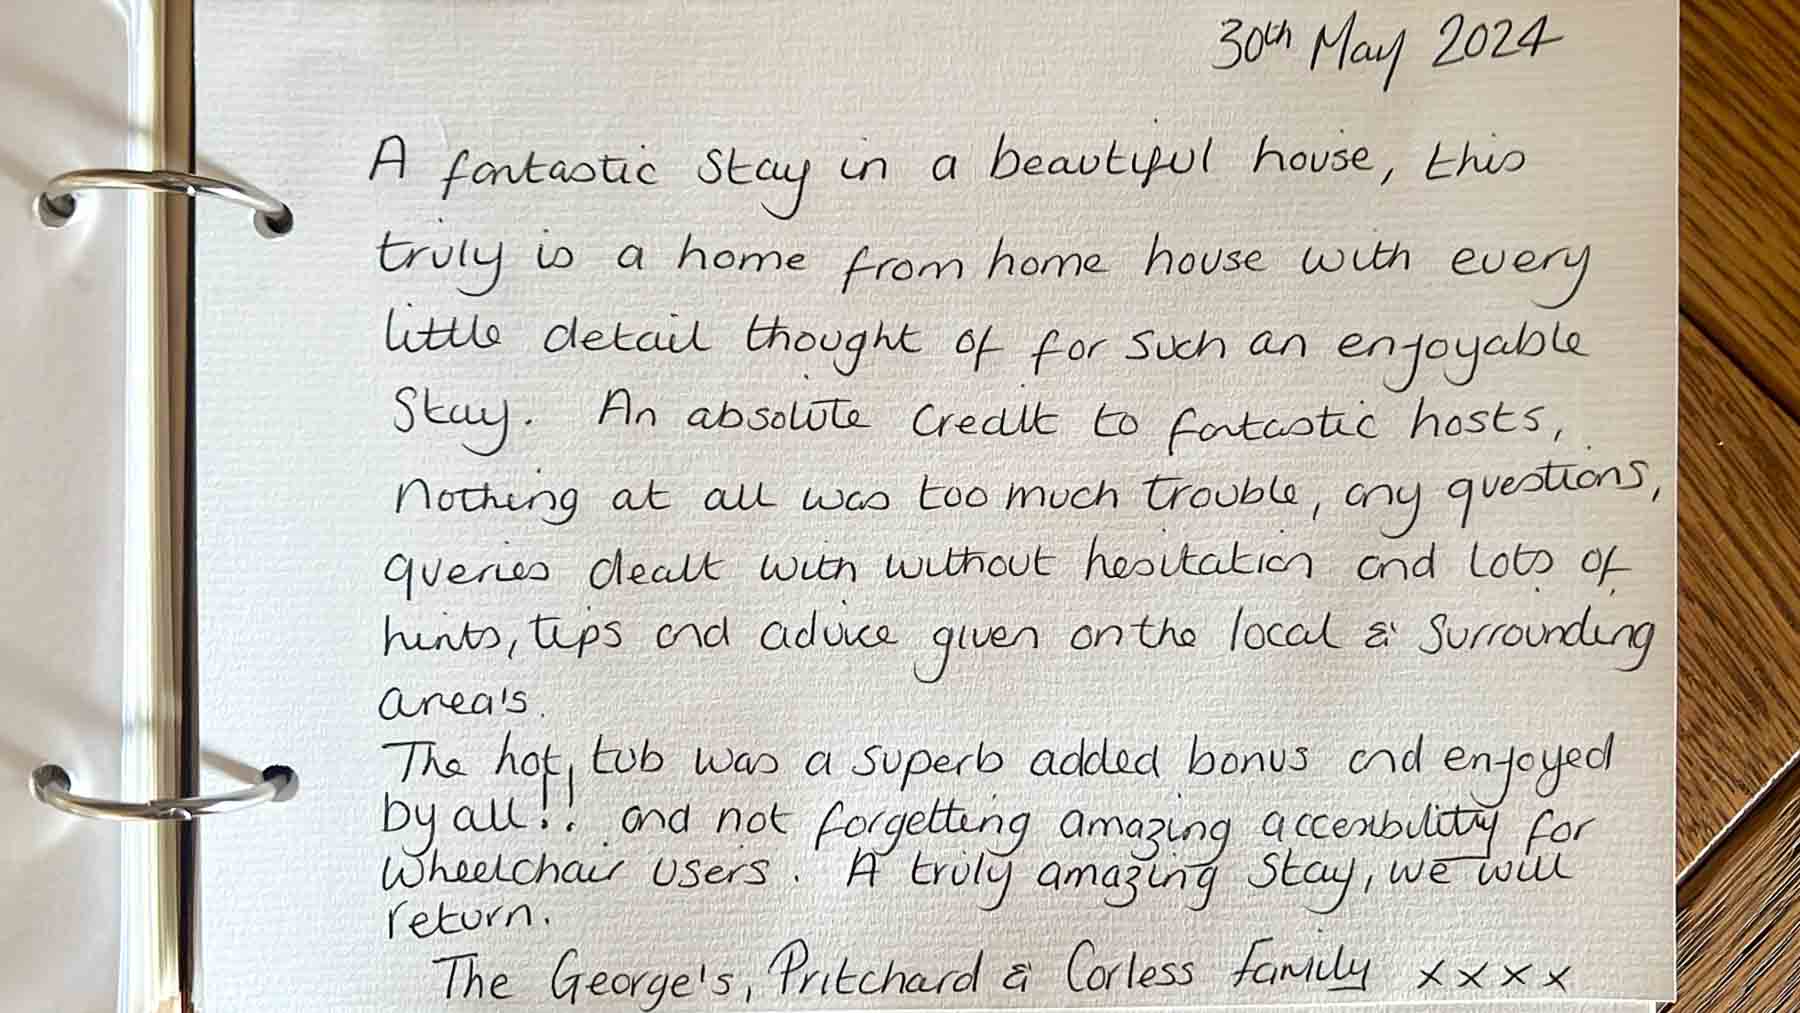 30th May 2024
A fantastic stay in a beautiful house, this
truly is a home from home house with every
little detail thought of for such an enjoyable
stay. An absolute credit to fantastic hosts,
nothing at all was too much trouble, any questions,
queries dealt with without hesitation and lots of
hints, tips and advice given on the local & surrounding
area's.
The hot tub was a superb added bonus and enjoyed
by all!! and not forgetting amazing accessibility for
wheelchair users. A truly amazing stay, we will
return.
The George's, Pritchard & Corless Family xxxx